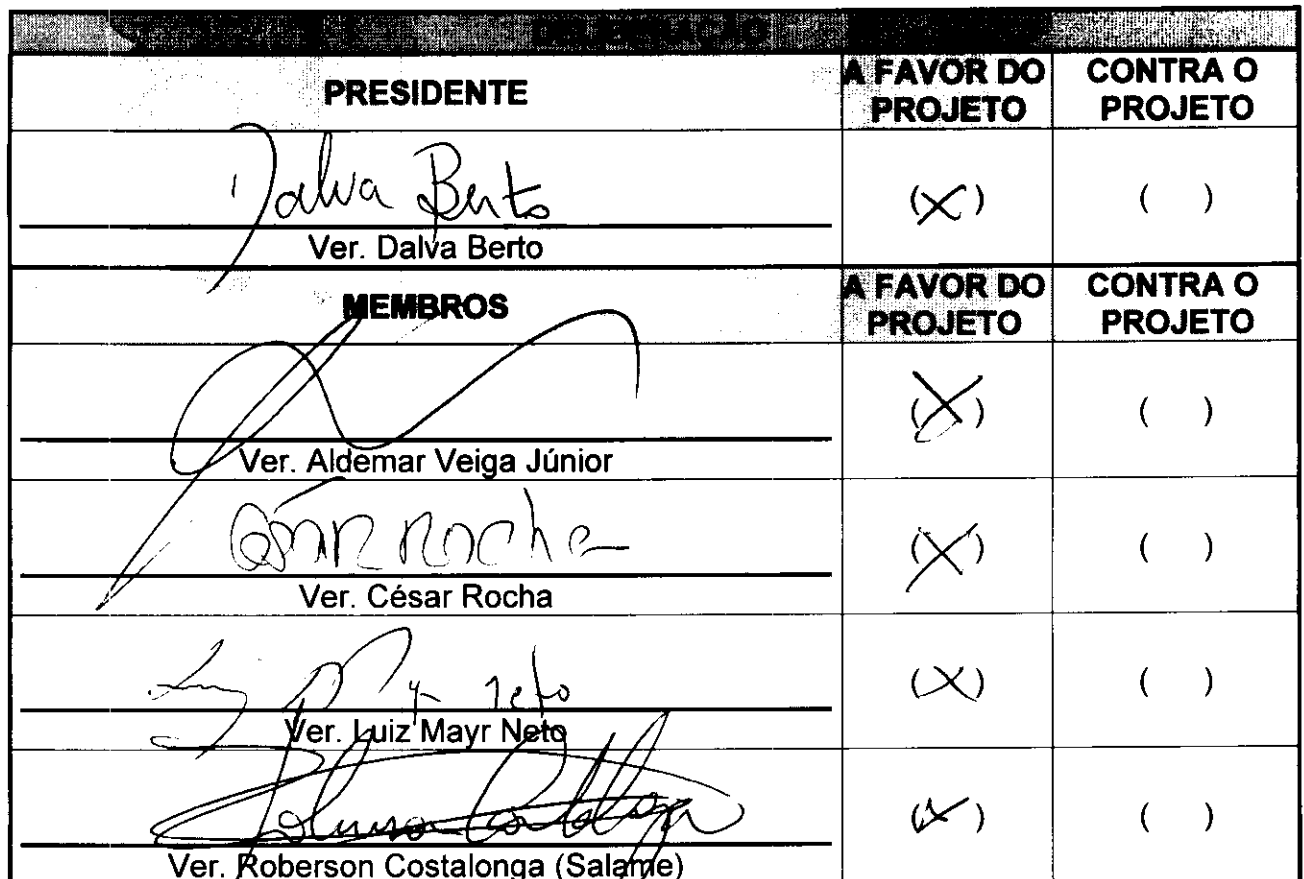 DELIBERAÇÃO
PRESIDENTE A FAVOR DO PROJETO CONTRA O PROJETO
Dalva Berto (X) ( )
Ver. Dalva Berto
MEMBROS A FAVOR DO PROJETO CONTRA O PROJETO
(X) ( )
Ver. Aldemar Veiga Júnior
César Rocha (X) ( )
Ver. César Rocha
(X) ( )
Ver. Luiz Mayr Neto
(X) ( )
Ver. Roberson Costalonga (Salame)